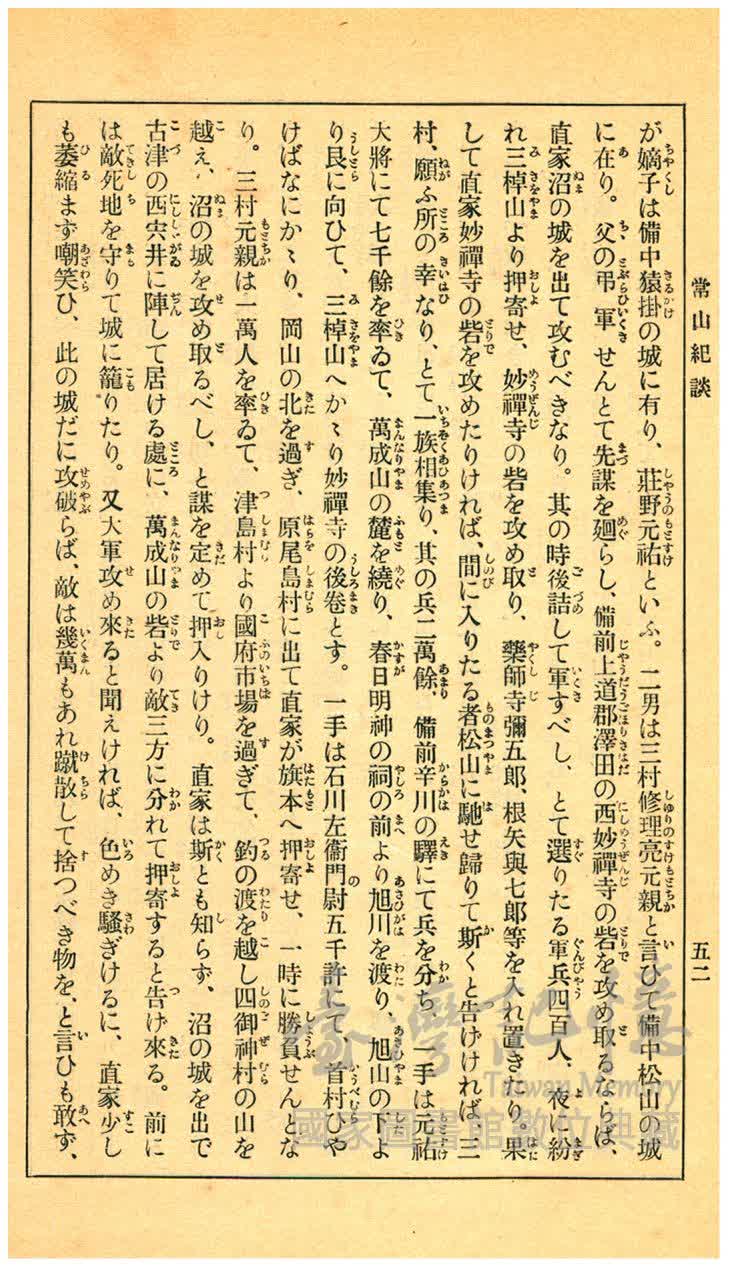 常山紀談
五二
が嫡子は備中猿掛の城に有り、莊野元祐といふ。二男は三村修理亮元親と言ひて備中松山の城
に在り。父の弔軍せんとて先謀を廻らし、備前上道郡澤田の西妙禪寺の砦を攻め取るならば、
直家沼の城を出て攻むべきなり。其の時後詰して軍すべし、とて選りたる軍兵四百人、夜に紛
れ三棹山より押寄せ、妙禪寺の砦を攻め取り、藥師寺彌五郎、根矢與七郞等を入れ置きたり。果
して直家妙禪寺の砦を攻めたりければ、間に入りたる者松山に馳せ歸りて斯くと告げければ、三
村、願ふ所の幸なり、とて一族相集り、其の兵二萬餘、備前辛川の驛にて兵を分ち、一手は元祐
大將にて七千餘を率ゐて、萬成山の麓を繞り、春日明神の祠の前より旭川を渡り、旭山の下よ
り艮に向ひて、三棹山へかゝり妙禪寺の後卷とす。一手は石川左衞門尉五千許にて、首村ひや
けばなにかゝり、岡山の北を過ぎ、原尾島村に出て直家が旗本へ押寄せ、一時に勝負せんとな
り。三村元親は一萬人を率ゐて、津島村より國府市場を過ぎて、釣の渡を越し四御神村の山を
越え、沼の城を攻め取るべし、と謀を定めて押入りけり。直家は斯とも知らず、沼の城を出で
古津の西宍井に陣して居ける處に、萬成山の砦より敵三方に分れて押寄すると告げ來る。前に
は敵死地を守りて城に籠りたり。又大軍攻め來ると聞えければ、色めき騷ぎけるに、直家少し
も萎縮まず嘲笑ひ、此の城だに攻破らば、敵は幾萬もあれ蹴散して捨つべき物を、と言ひも敢ず、
臺灣記憶
Taiwan Memory
國家圖書館數位典藏